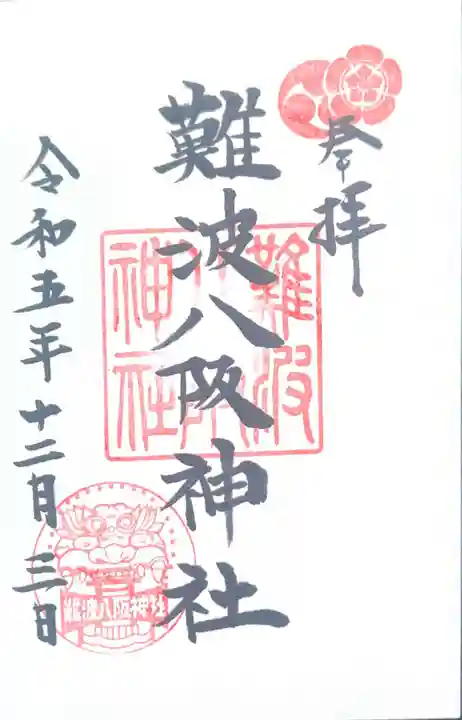 奉拝
難波八阪神社
難波八阪神社
令和五年十二月三日
難波八阪神社